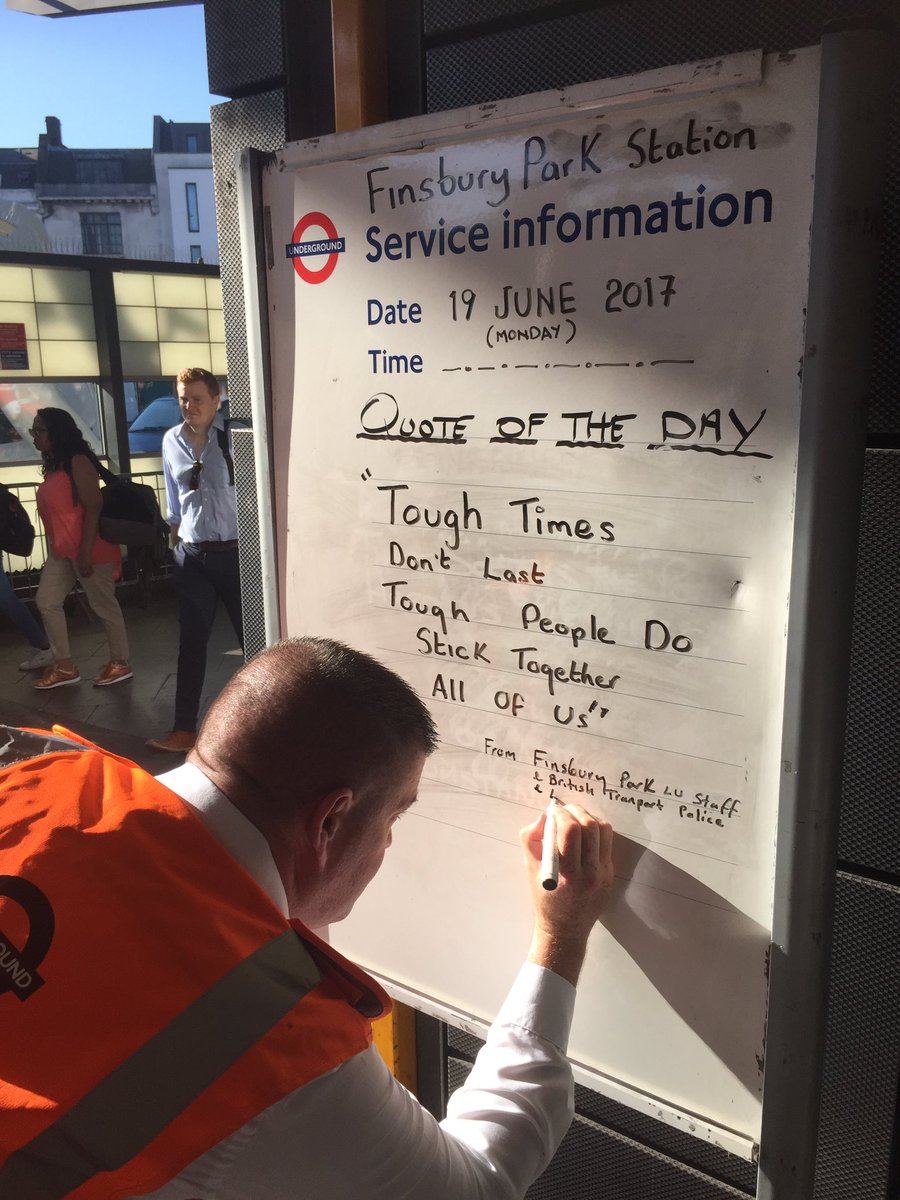 Finsbury Park Station
UNDERGROUND
Service information
Date 19 JUNE 2017
(MONDAY)
Time
QUOTE OF THE DAY
"Tough Times
Don't Last
Tough People Do
Stick Together
All Of Us"
From Finsbury Park LU Staff
& British Tranport Police
& L
OUND